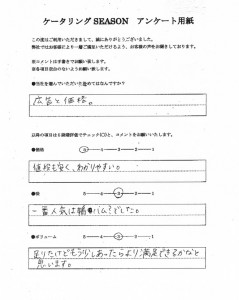 ケータリングSEASON アンケート用紙
この度はご利用いただきまして、誠にありがとうございました。
弊社ではお客様により一層ご満足いただけるよう、お客様の声をお聞きしております。
●当社を選んでいただいた決めてはなんですか？
広告と価格。
以降の項目は5段階評価でチェック(○)と、コメントをお願いいたします。
●価格 5－4－3－2－1
値段も安く、わかりやすい。
●味 5－4－3－2－1
一番人気は
でした。
●ボリューム 5－4－3－2－1
足りたけどもう少しあったらより満足できるかなと
思います。